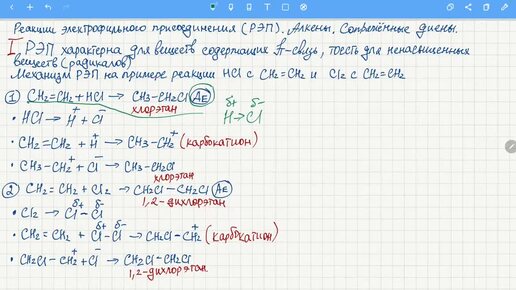 Реакции электрофильного присоединения (РЭП). Алкены. Сопряжённые диены.
I. РЭП характерна для веществ содержащих π-связь, тоесть для ненасыщенных
веществ (радикалов)
Механизм РЭП на примере реакции HCl с CH2=CH2 и Cl2 с CH2=CH2
① CH2=CH2 + HCl → CH3-CH2Cl (AE)
хлорэтан
δ+ δ-
H→Cl
• HCl → H⁺ + Cl⁻
• CH2=CH2 + H⁺ → CH3-CH2⁺ (карбокатион)
• CH3-CH2⁺ + Cl⁻ → CH3-CH2Cl
хлорэтан
② CH2=CH2 + Cl2 → CH2Cl-CH2Cl (AE)
1,2-дихлорэтан
δ+ δ-
• Cl2 → Cl-Cl
δ+ δ-
• CH2=CH2 + Cl-Cl → CH2Cl-CH2⁺ (карбокатион)
• CH2Cl-CH2⁺ + Cl⁻ → CH2Cl-CH2Cl
1,2-дихлорэтан